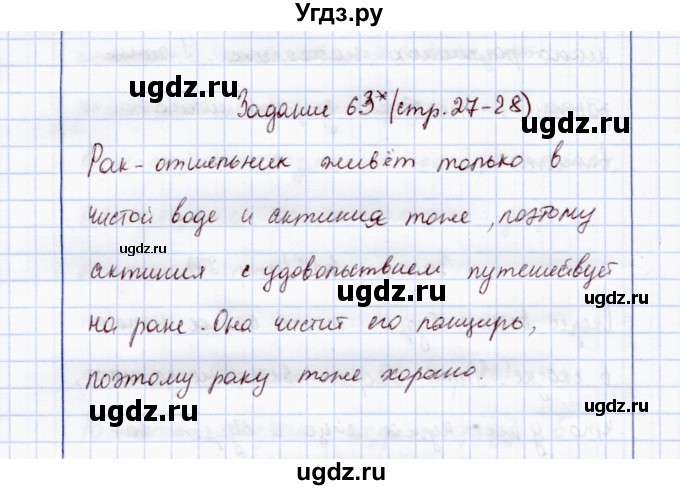 Угдз.ру
Задание 63* (стр. 27-28)
Рак-отшельник живёт только в
чистой воде и актиния тоже, поэтому
актиния с удовольствием путешествует
на раке. Она чистит его панцирь,
поэтому раку тоже хорошо.
ugdz.ru
ugdz.ru
ugdz.ru
ugdz.ru
ugdz.ru
ugdz.ru
ugdz.ru
ugdz.ru